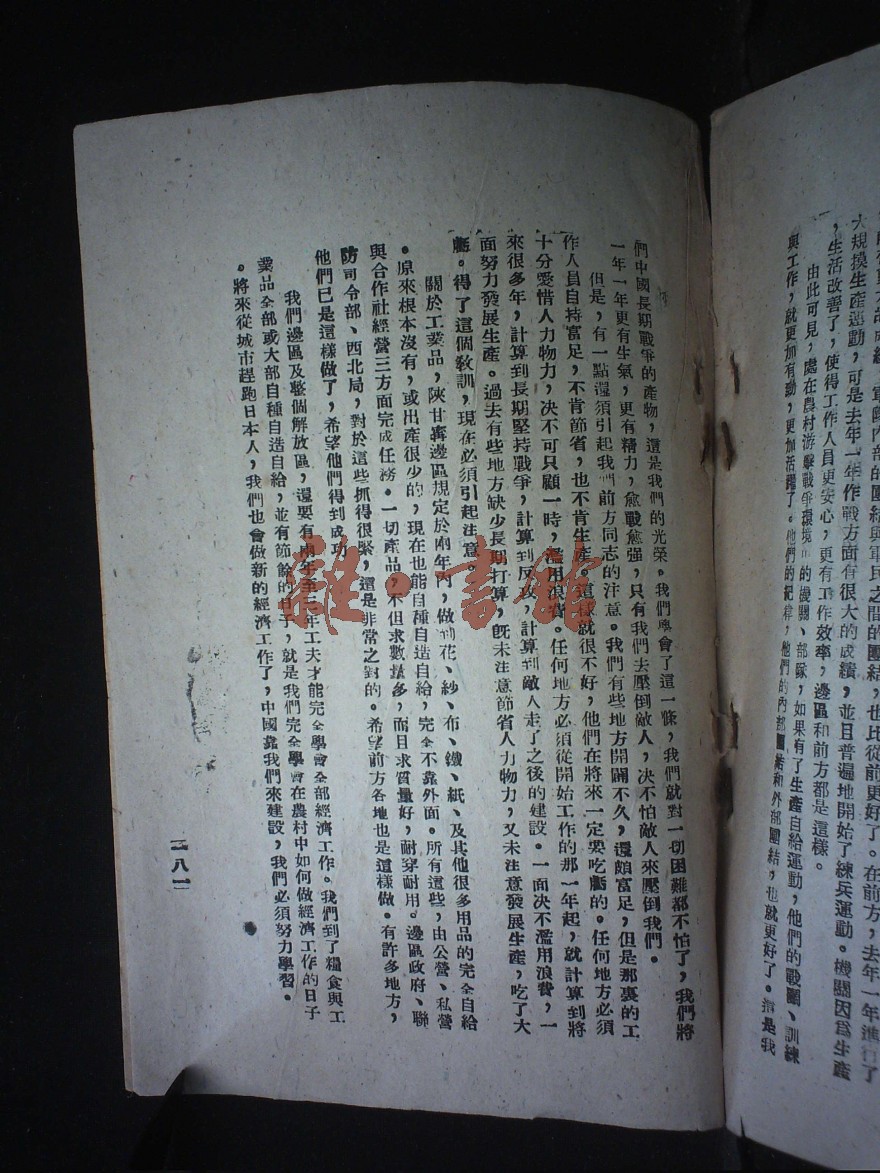 軍隊內部的團結與軍民之間的團結,也比從前更好了。在前方,去年一年進行了
大規模生產運動,可是去年一年作戰方面有很大的成績,並且普遍地開始了練兵運動。機關因爲生產
,生活改善了,使得工作人員更安心,更有工作效率,邊區和前方都是這樣。
由此可見,處在農村游擊戰爭環境的機關、部隊,如果有了生產自給運動,他們的戰鬥、訓練
與工作,就更加有勁,更加活躍了。他們的紀律,他們的內部團結和外部團結,也就更好了。這是我
們中國長期戰爭的產物,這是我們的光榮。我們學會了這一條,我們就對一切困難都不怕了,我們將
一年一年更有生氣,更有精力,愈戰愈強,只有我們去壓倒敵人,決不怕敵人來壓倒我們。
但是,有一點還須引起我們前方同志的注意。我們有些地方開闢不久,還頗富足,但是那裏的工
作人員自持富足,不肯節省,也不肯生產。這樣就很不好,他們在將來一定要吃虧的。任何地方必須
十分愛惜人力物力,决不可只顧一時,濫用浪費。任何地方必須從開始工作的那一年起,就計算到將
來很多年,計算到長期堅持戰爭,計算到反攻,計算到敵人走了之後的建設。一面決不濫用浪費,一
面努力發展生產。過去有些地方缺少長期打算,旣未注意節省人力物力,又未注意發展生產,吃了大
虧。得了這個敎訓,現在必須引起注意。
關於工業品,陝甘寧邊區規定於兩年內,做到花、紗、布、鐵、紙、及其他很多用品的完全自給
。原來根本沒有,或出產很少的,現在也能自種自造自給,完全不靠外面。所有這些,由公營、私營
與合作社經營三方面完成任務。一切產品,不但求數量多,而且求質量好,耐穿耐用。邊區政府、聯
防司令部、西北局,對於這些抓得很緊,這是非常之對的。希望前方各地也是這樣做。有許多地方,
他們已是這樣做了,希望他們得到成功。
我們邊區及整個解放區,還要有兩年至三年工夫才能完全學會全部經濟工作。我們到了糧食與工
業品全部或大部自種自造自給,並有節餘的日子,就是我們完全學會在農村中如何做經濟工作的日子
。將來從城市趕跑日本人,我們也會做新的經濟工作了,中國靠我們來建設,我們必須努力學習。
一八一
雜·書館